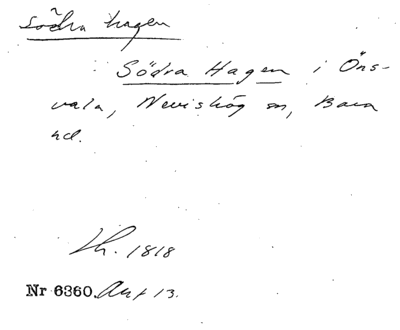 södra hagen
Södra Hagen i Öns-
vala, Nevishög sn, Bara
hd.
Lh. 1818
Nr 6360. Ant 13.